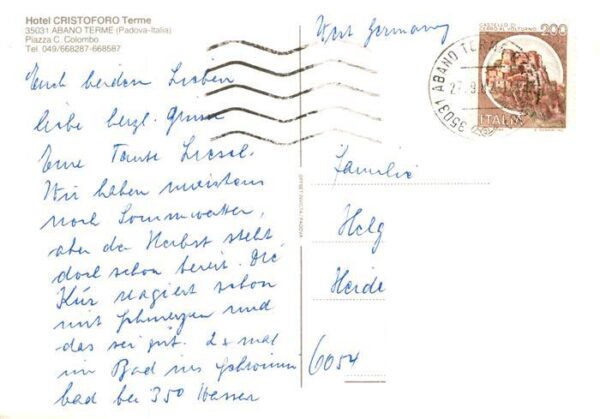 Hotel CRISTOFORO Terme
35031 ABANO TERME (Padova-Italia)
Piazza C. Colombo
Tel. 049/668287-668587
West Germany
CASTELLO DI CERRO AL VOLTURNO 200
ITALIA
35031 ABANO TERME
Euch beiden Lieben
liebe herzl. Grüsse
Eure Tante Liesel.
Wir haben meistens
noch Sommwetter,
aber der Herbst steht
doch schon bereit. Die
Kur reagiert schon
mit Schmerzen und
das sei gut. 2x mal
im Bad ins Schwimm
bad bei 350 Wasser
OFFSET-INVICTA-PADOVA
Familie
Helg
Heide
6054